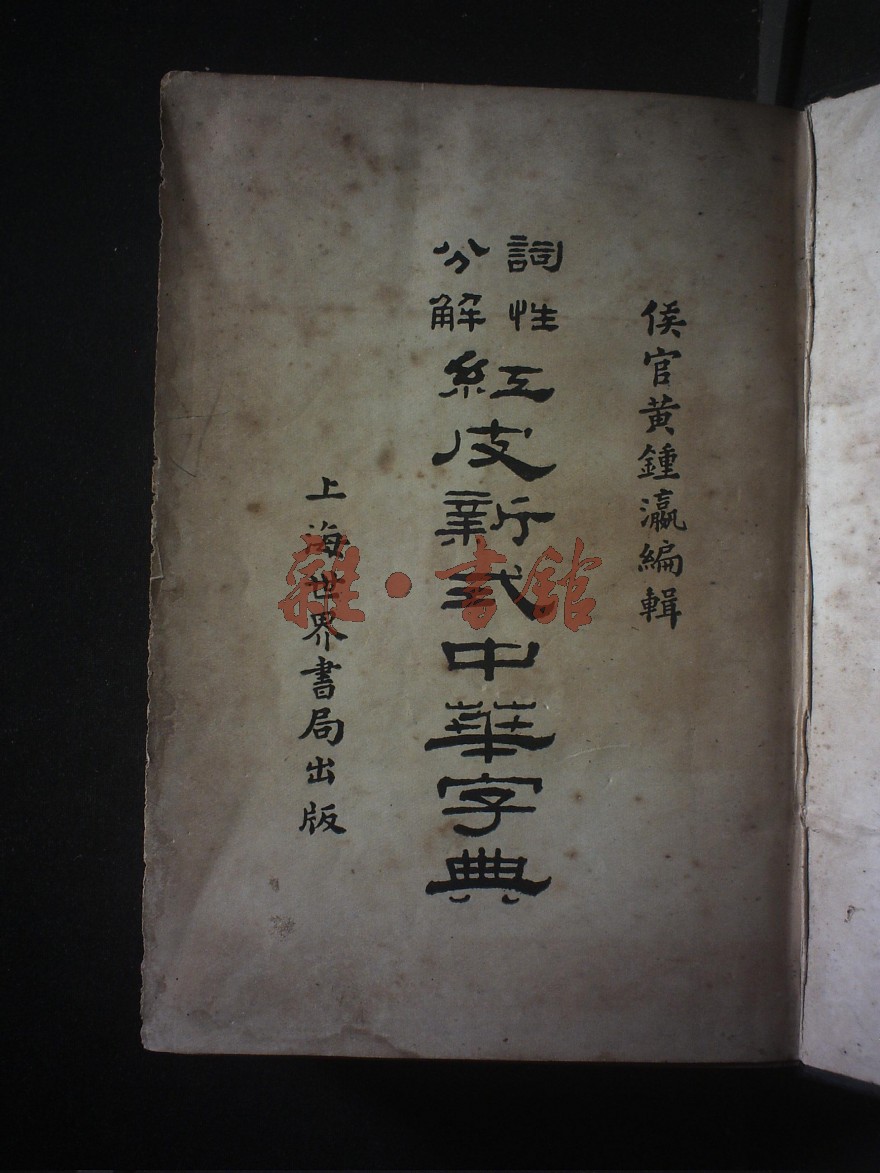 侯官黄鍾瀛編輯
詞性
分解
紅皮新式中華字典
上海世界書局出版
雜·書館